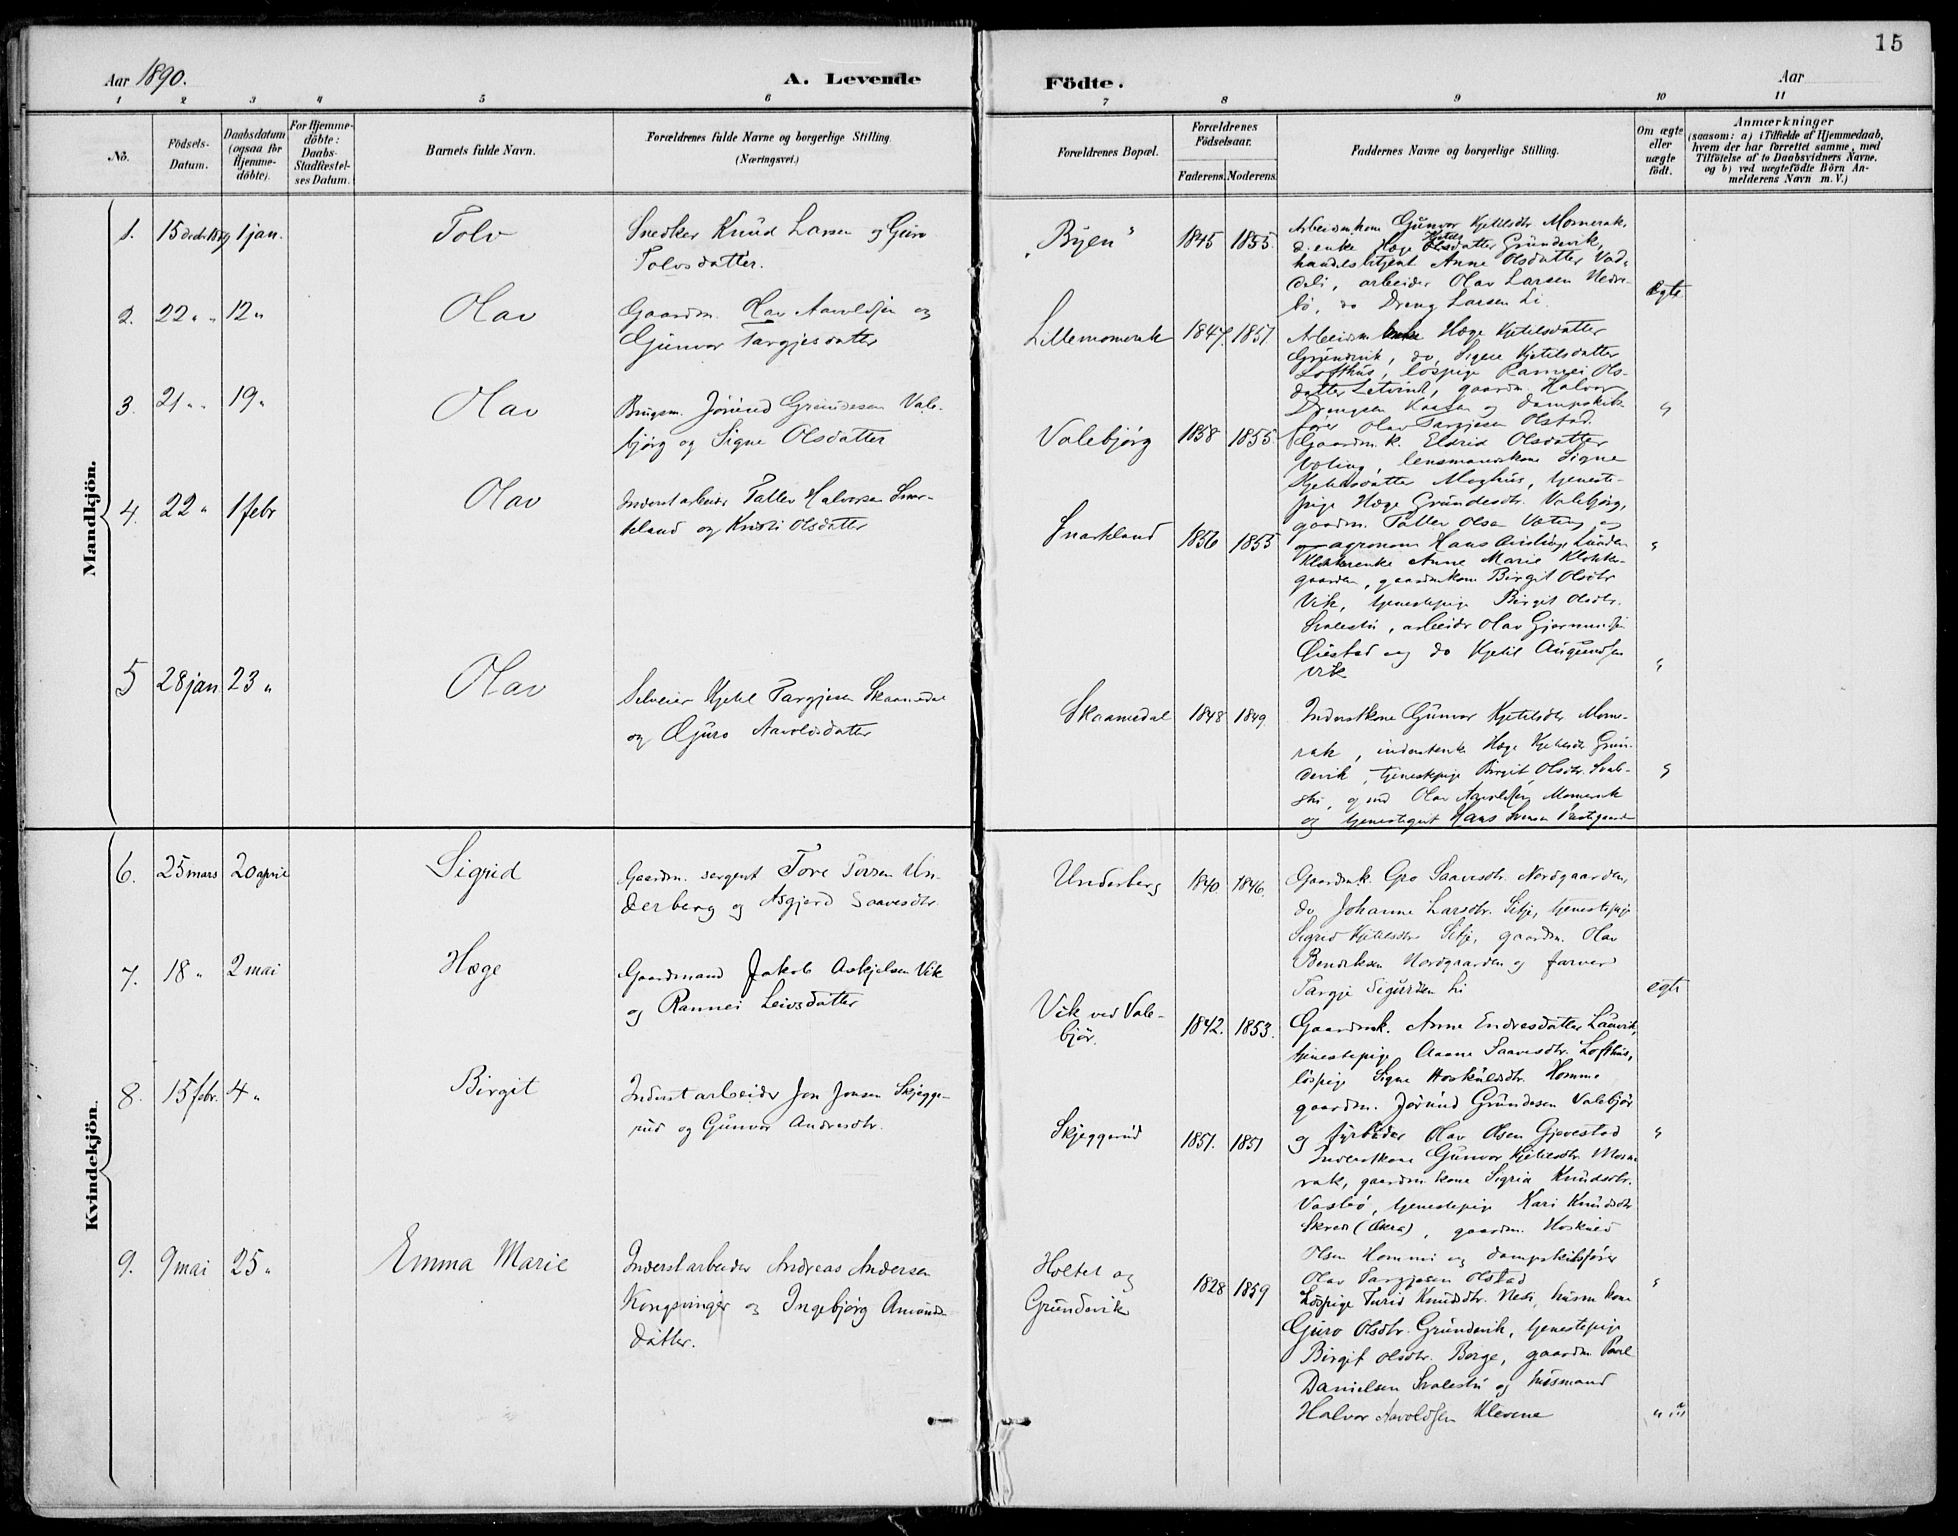 15
Aar 1890.
A. Levende
Födte.
Aar
1 2 3 4 5 6 7 8 9 10 11
No.
Födsels-
Datum.
Daabsdatum
(ogsaa for
Hjemme-
döbte).
For Hjemme-
döbte:
Daabs-
Stadfæstel-
ses Datum.
Barnets fulde Navn.
Forældrenes fulde Navne og borgerlige Stilling.
(Næringsvei.)
Forældrenes Bopæl.
Forældrenes
Födselsaar.
Faderens. Moderens.
Faddernes Navne og borgerlige Stilling.
Om ægte
eller
uægte
födt.
Anmærkninger
(saasom: a) i Tilfælde af Hjemmedaab,
hvem der har forrettet samme, med
Tilföielse af to Daabsvidners Navne,
og b) ved uægtefödte Börn An-
melderens Navn m. V.)
Mandkjön.
1. 15 dcbr 1889 1 jan. Tolv
Snedker Knud Larsen og Guro
Tolvsdatter.
"Byen" 1845 1855.
Arbeidmkone Gunvor Kjetilsdtr Momerak,
do enke Hæge Kjetilsdatter Grundevik,
handelsbetjent Anne Olsdatter Vad-
deli, arbeider Olav Larsen Nedre-
bö, do Dreng Larsen Li.
Ægte
2. 22 " " 12 " Olav
Gaardm. Olav Aavoldsen og
Gunvor Targjesdatter
Lillemomerak 1847. 1851
Arbeidm. enke Hæge Kjetilsdatter
Grundevik, do, Signe Kjetilsdatter
Lofthus, löspige Rannei Ols-
datter Letvind, gaardm. Halvor
Drengsen Kaasa og dampskib-
förer Olav Targjesen Olstad.
"
3. 21 " " 19 " Olav
Brugsm. Jörund Grundesen Vale-
björg og Signe Olsdatter
Valebjörg 1858 1855.
Gaardm. k. Eldrid Olsdatter
Voting, lensmandskone Signe
Kjetilsdatter Moghus, tjeneste-
pige Hæge Grundesdtr. Valebjörg,
gaardm. Tallev Olsen Voting og
agronom Hans Lunden
4. 22 " 1 febr Olav
Inderst arbeider Tallev Halvorsen Snar-
teland og Kristi Olsdatter
Snarteland 1856 1855
"
Klokkerenke Anne Marie Klokker-
gaarden, gaardmkone Birgit Olsdtr
Vik, tjenestepige Birgit Olsdtr.
Svalestu, arbeider Olav Gjermundsen
Öiestad og do Kjetil Augundsen
Vik
"
5 28 jan 23 " Olav
Selveier Kjetil Targjesen Skaanedal
og Guro Aavoldsdatter
Skaanedal 1848 1849
Inderstkone Gunvor Kjetilsdtr Mome-
rak, inderstenke Hæge Kjetilsdtr Grun-
devik, tjenestepige Birgit Olsdtr. Svale-
stu, og ind Olav Aavoldsen Momerak
og tjenestegut Hans Prestgaard
"
Kvindekjön.
6. 25 mars 20 april Sigrid
Gaardm. sergent Tore Torsen Un-
derberg og Asgjerd Saavesdtr.
Underberg 1840 1846.
Gaardmk. Gro Saavesdtr. Nordgaarden,
do Johanne Larsdtr. Sitje, tjenestepige
Sigrid Kjetilsdtr Sitje, gaardm. Olav
Bendiksen Nordgaarden og farver
Targje Sigurdsen Li
egte
7. 18 " 2 mai Hæge
Gaardmand Jakob Askjelsen Vik
og Rannei Leivsdatter
Vik ved Vale-
björ. 1842. 1853.
Gaardmk. Anne Endresdatter Lauvik,
tjenestepige Aane Saavesdtr. Lofthus,
löspige Signe Hoskuldsdtr. Homme
gaardm. Jörund Grundesen Valebjör
og fyrböder Olav Olsen Gjevestad
"
8. 15 febr. 4 " Birgit
Inderst arbeider Jon Jonsen Skjegge-
rud og Gunvor Andresdtr.
Skjeggerud 1851. 1851
Inderstkone Gunvor Kjetilsdtr. Mome
rak, gaardm kone Sigrid Knudsdtr.
Vaslbö, tjenestepige Kari Knudsdtr
Skree (Öera), gaardm. Hoskuld
Olsen Hommi og dampskibsförer
Olav Targjesen Olstad
"
9. 9 mai 25 " Emma Marie
Inderst arbeider Andreas Andersen
Kongsvinger og Ingebjörg Amunds
datter.
Holtet og
Grundevik 1828 1859
Löspige Turid Knudsdtr. Nesi, husm kone
Guro Olsdtr. Grundevik, tjenestepige
Birgit Olsdtr. Berge, gaardm. Povel
Danielsen Svalestu og husmand
Halvor Aavoldsen Klevene
"